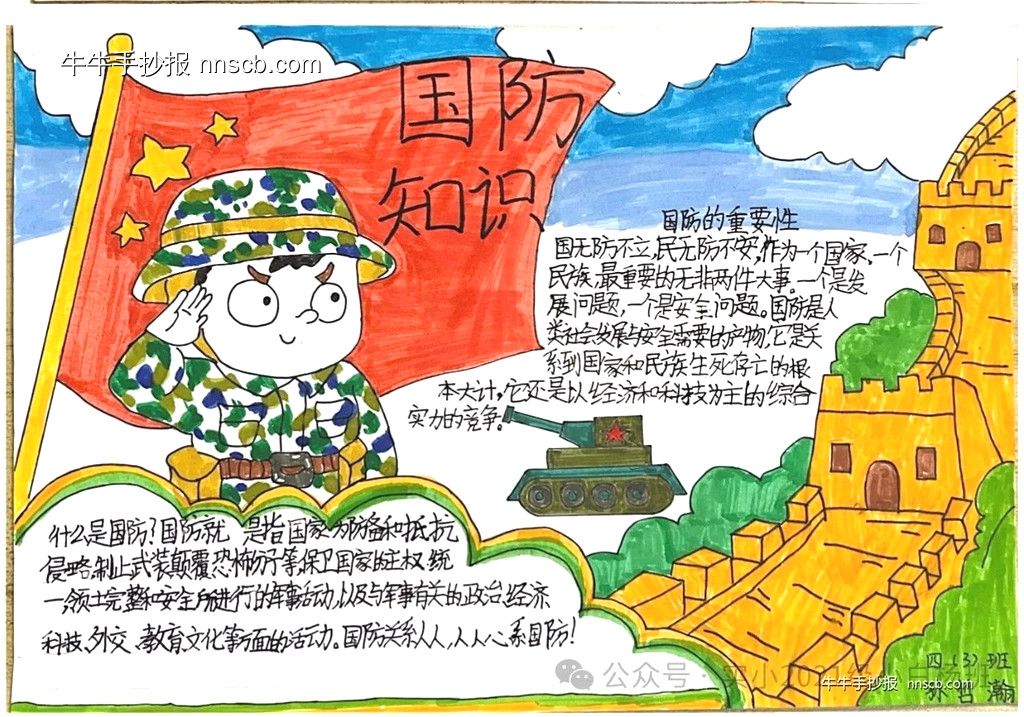 牛牛手抄报 nnscb.com
国防
知识
国防的重要性
国无防不立,民无防不安,作为一个国家,一个
民族,最重要的无非两件大事。一个是发
展问题,一个是安全问题。国防是人
类社会发展与安全需要的产物,它是关
系到国家和民族生死存亡的根
本大计,它还是以经济和科技为主的综合
实力的竞争。
什么是国防?国防就是指国家为防备和抵抗
侵略,制止武装颠覆,恐怖分子等,保卫国家的主权、统
一、领土完整和安全所进行的军事活动,以及与军事有关的政治、经济
科技、外交、教育、文化等方面的活动。国防关系人人,人人心系国防!
公众号·实小2021级
四(3)班
牛牛手抄报 nnscb.com